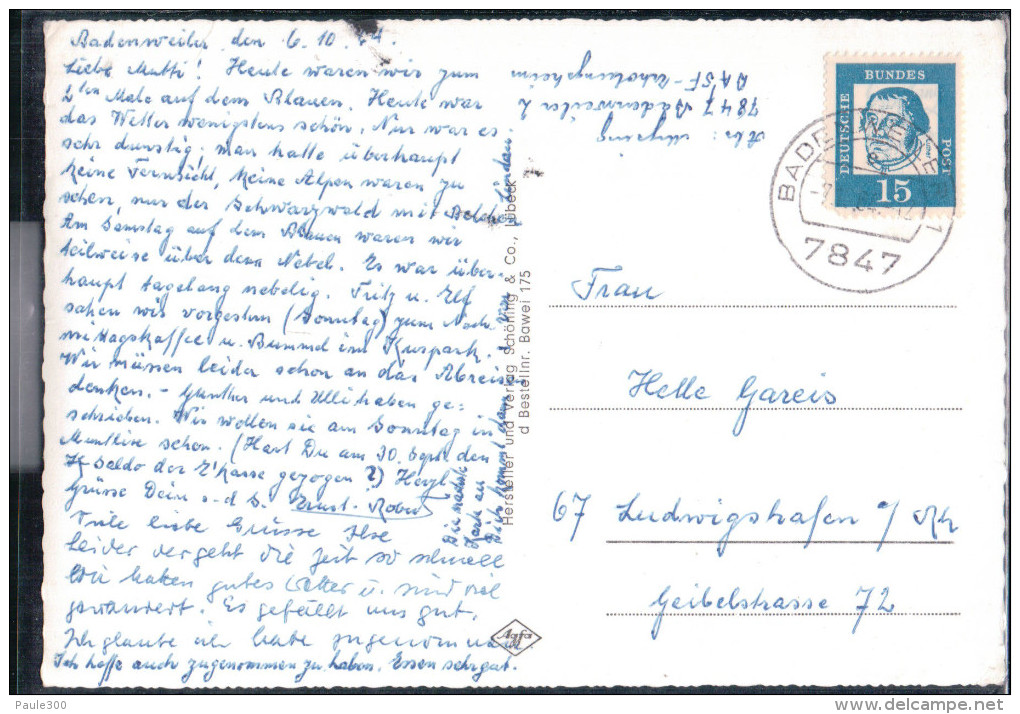 Badenweiler, den 6.10.64.
Liebe Mutti! Heute waren wir zum
2ten Male auf dem Blauen. Heute war
das Wetter wenigstens schön. Nur war es
sehr dunstig; man hatte überhaupt
keine Fernsicht, keine Alpen waren zu
sehen, nur der Schwarzwald mit Belchen.
Am Samstag auf dem Blauen waren wir
teilweise über dem Nebel. Es war über-
haupt tagelang nebelig. Fritz u. Elf
sahen wir vorgestern (Sonntag) zum Nach-
mittagskaffee u. Bummel im Kurpark.
Wir müssen leider schon an das Abreisen
denken. - Günther und Ulli haben ge-
schrieben. Wir wollen sie am Sonntag in
sehen. (Hast Du am 30. Sept. den
Saldo der E'kasse gezogen?) Herzl.
Grüsse Dein s. d. S. Ernst-Robert
Viele liebe Grüsse Ilse
Leider vergeht die Zeit so schnell
Wir hatten gutes Wetter u. sind viel
gewandert. Es gefällt uns gut.
Ich glaube ich habe zugenommen
Ich hoffe auch zugenommen zu haben. Essen sehr gut.
Die nächste
Karte an
Dich kommt dann v. Lindau
Abs:
7847 Badenweiler 2
DASF-Erholungsheim
Hersteller und Verlag Schöning & Co., Lübeck
d Bestellnr. Bawei 175
Agfa
DEUTSCHE
BUNDES
POST
15
BADENWEILER 1
7847
Frau
Helle Gareis
67 Ludwigshafen a/Rh
Geibelstrasse 72
Paule300
www.delcampe.net